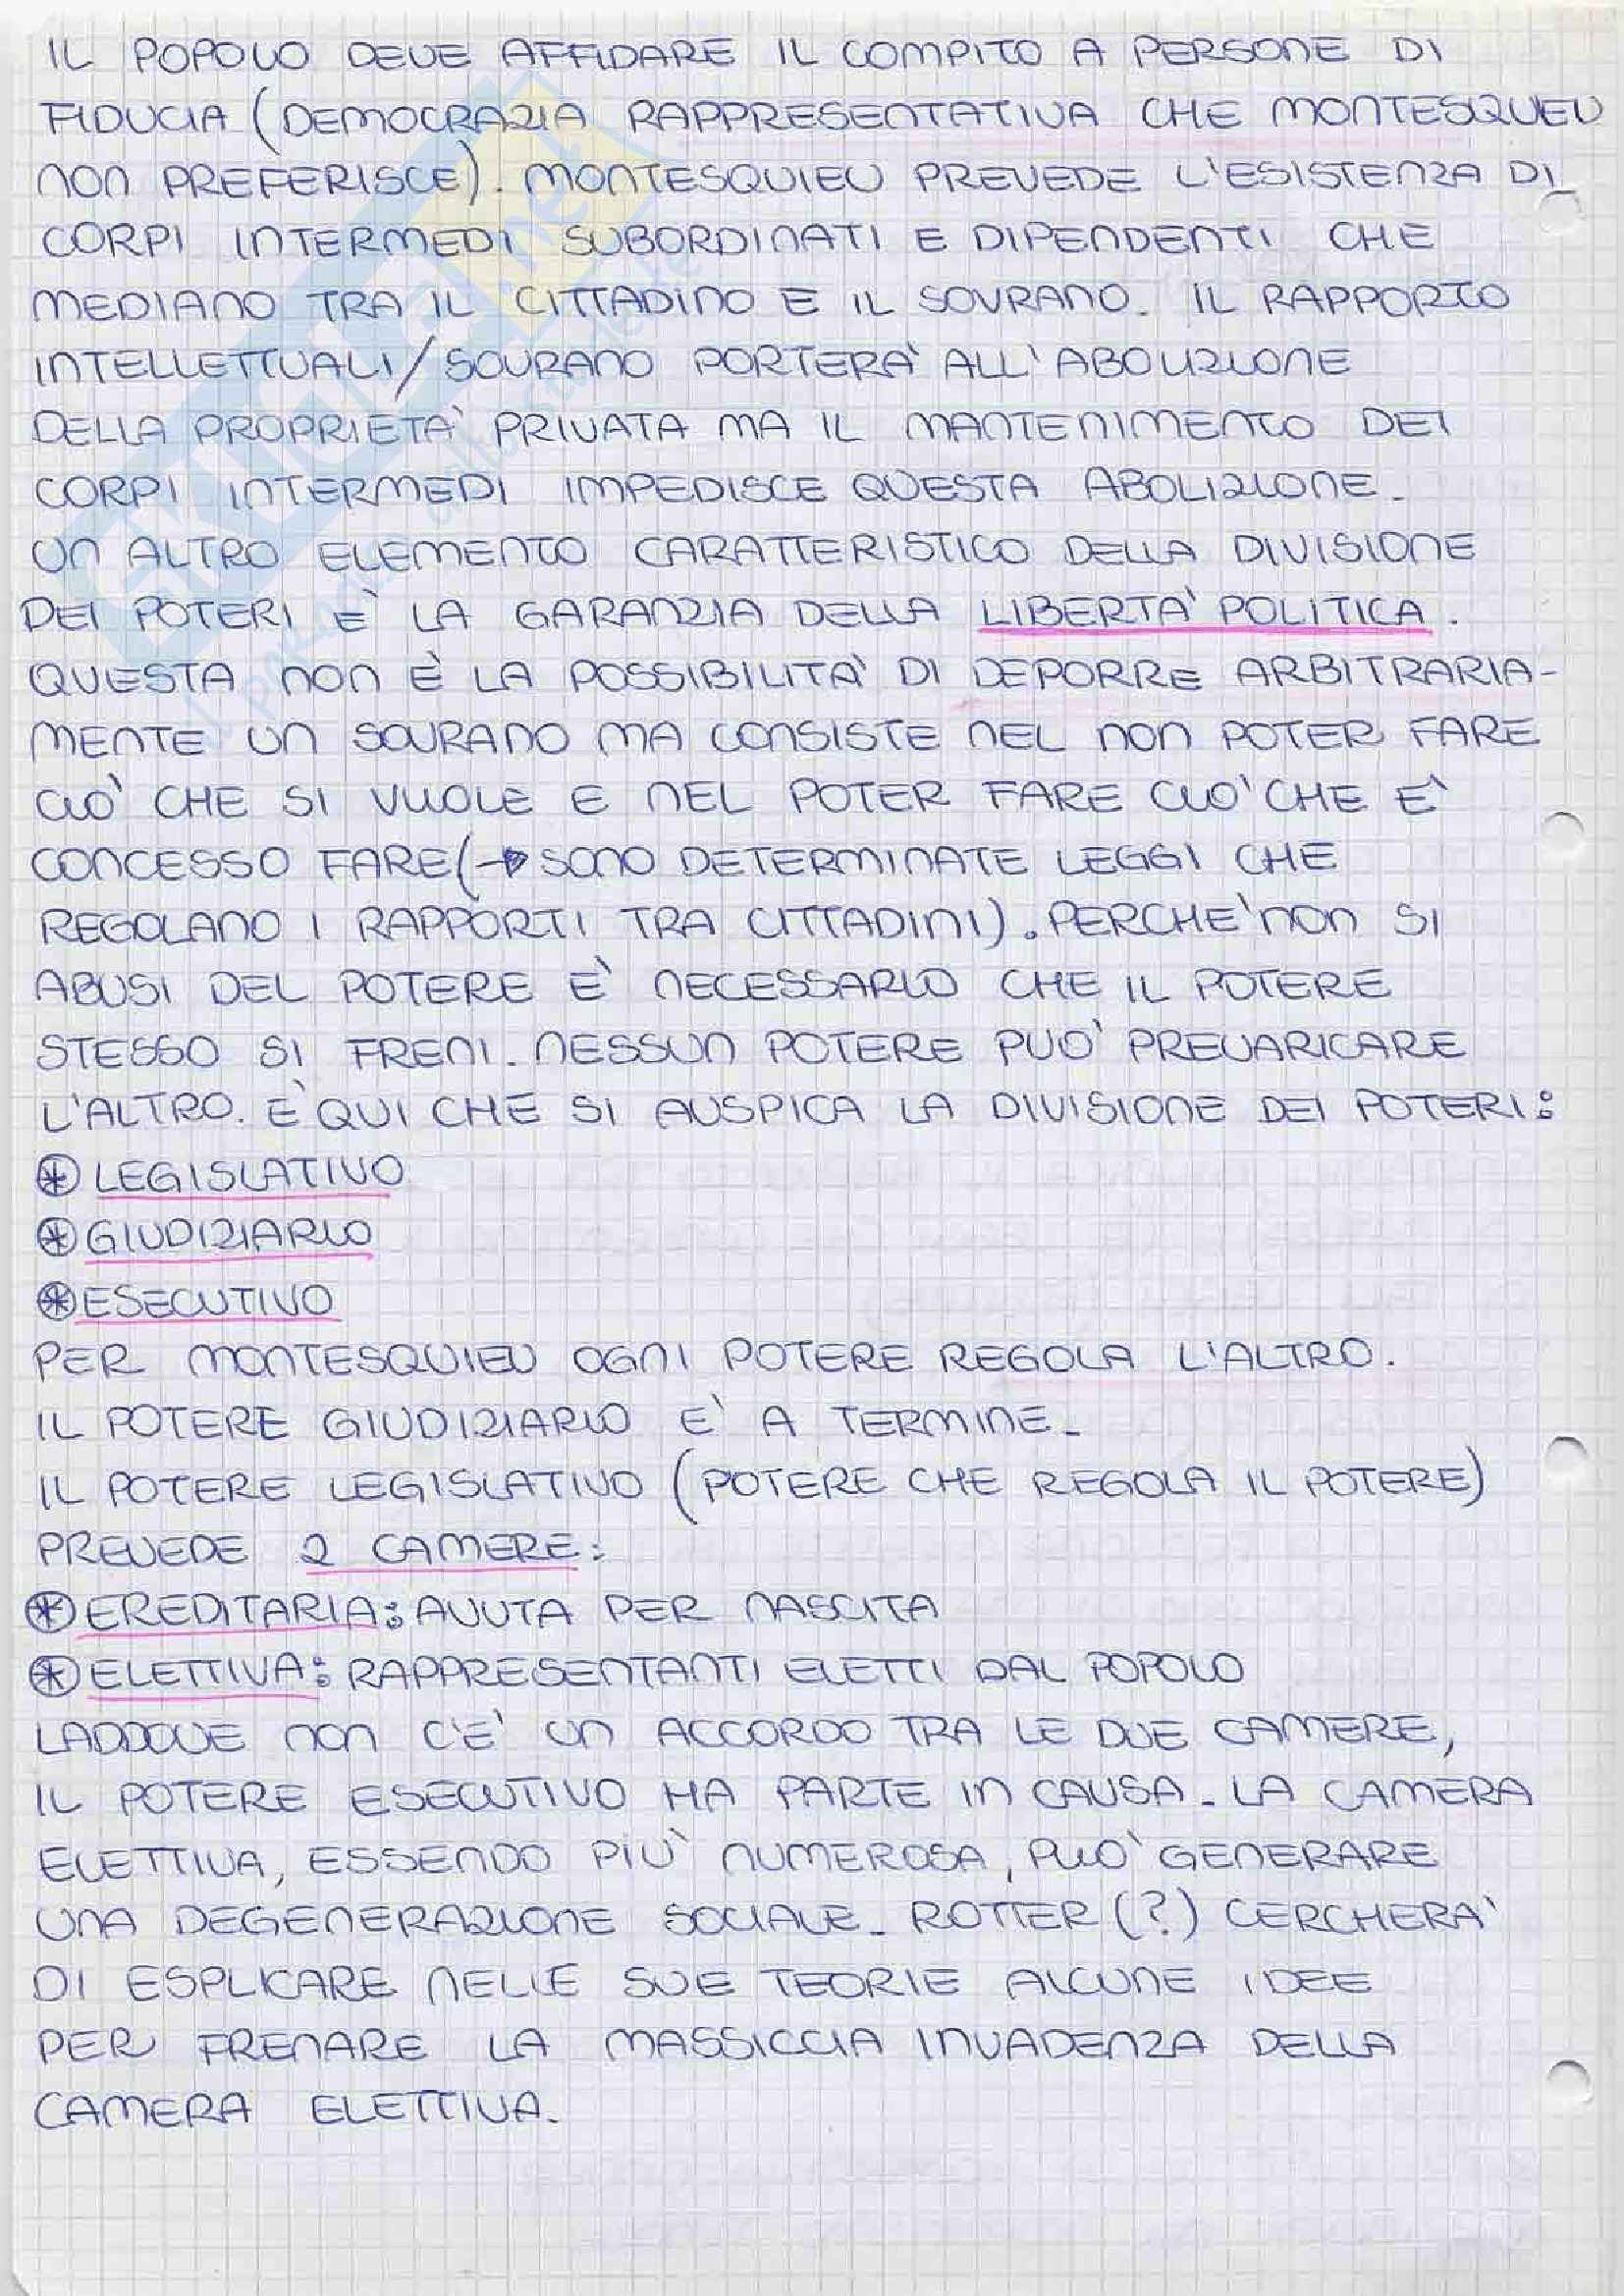 IL POPOLO DEVE AFFIDARE IL COMPITO A PERSONE DI
FIDUCIA (DEMOCRAZIA RAPPRESENTATIVA CHE MONTESQUEU
NON PREFERISCE). MONTESQUIEU PREVEDE L'ESISTENZA DI
CORPI INTERMEDI SUBORDINATI E DIPENDENTI CHE
MEDIANO TRA IL CITTADINO E IL SOVRANO. IL RAPPORTO
INTELLETTUALI/SOVRANO PORTERA' ALL'ABOLIZIONE
DELLA PROPRIETA' PRIVATA MA IL MANTENIMENTO DEI
CORPI INTERMEDI IMPEDISCE QUESTA ABOLIZIONE.
UN ALTRO ELEMENTO CARATTERISTICO DELLA DIVISIONE
DEI POTERI E' LA GARANZIA DELLA LIBERTA' POLITICA.
QUESTA NON È LA POSSIBILITA' DI DEPORRE ARBITRARIA-
MENTE UN SOVRANO MA CONSISTE NEL NON POTER FARE
CIO' CHE SI VUOLE E NEL POTER FARE CIO' CHE E'
CONCESSO FARE (→ SONO DETERMINATE LEGGI CHE
REGOLANO I RAPPORTI TRA CITTADINI). PERCHE' NON SI
ABUSI DEL POTERE E' NECESSARIO CHE IL POTERE
STESSO SI FRENI. NESSUN POTERE PUO' PREVARICARE
L'ALTRO. E' QUI CHE SI AUSPICA LA DIVISIONE DEI POTERI:
⊛ LEGISLATIVO
⊛ GIUDIZIARIO
⊛ ESECUTIVO
PER MONTESQUIEU OGNI POTERE REGOLA L'ALTRO.
IL POTERE GIUDIZIARIO E' A TERMINE.
IL POTERE LEGISLATIVO (POTERE CHE REGOLA IL POTERE)
PREVEDE 2 CAMERE:
⊛ EREDITARIA: AVUTA PER NASCITA
⊛ ELETTIVA: RAPPRESENTANTI ELETTI DAL POPOLO
LADDOVE NON C'E' UN ACCORDO TRA LE DUE CAMERE,
IL POTERE ESECUTIVO HA PARTE IN CAUSA. LA CAMERA
ELETTIVA, ESSENDO PIU' NUMEROSA, PUO' GENERARE
UNA DEGENERAZIONE SOCIALE. ROTTER (?) CERCHERA'
DI ESPLICARE NELLE SUE TEORIE ALCUNE IDEE
PER FRENARE LA MASSICCIA INVADENZA DELLA
CAMERA ELETTIVA.